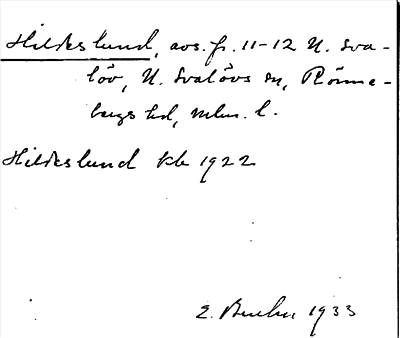 Hildeslund, avs. fr. 11-12 N. Sva-
löv, N. Svalövs sn, Rönne-
bergs hd, Mlm. l.
Hildeslund kb 1922
E. 1933